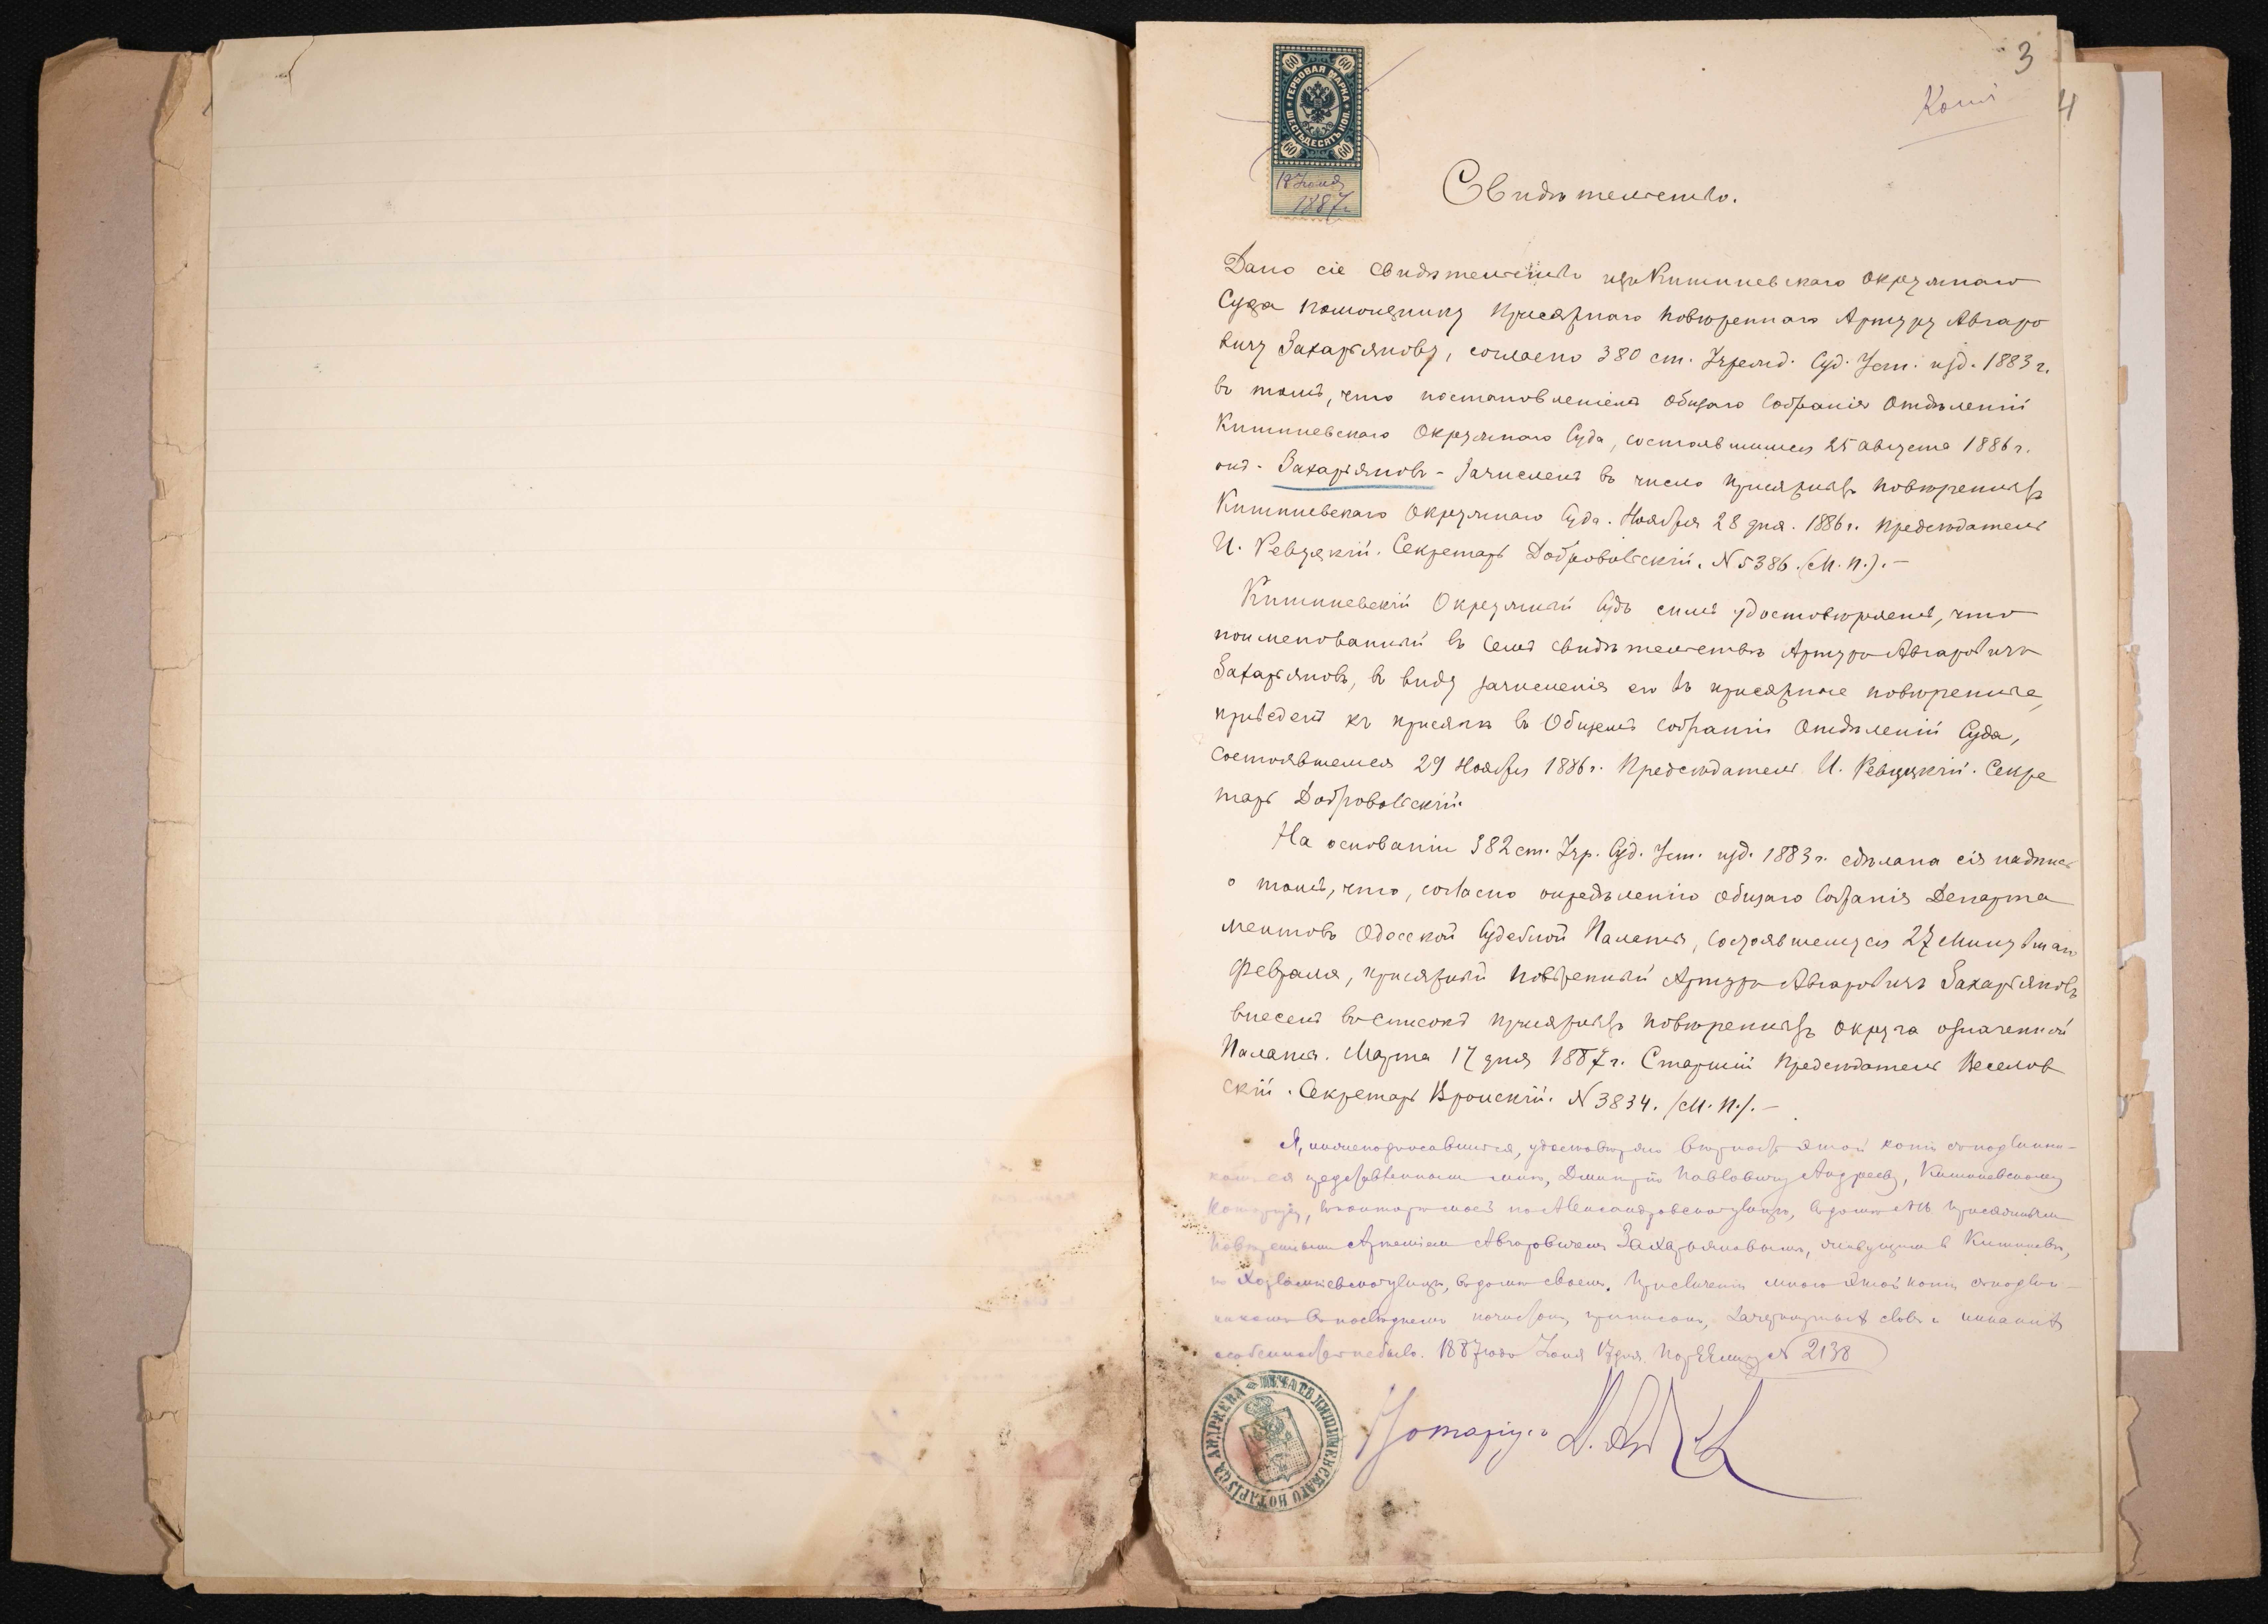 3
Копія
4
60 60
ГЕРБОВАЯ МАРКА
ШЕСТЬДЕСЯТЪ КОП.
60 60
17 Іюня
1887 г.
Свидѣтельство.
Дано сіе свидѣтельство изъ Кишиневскаго Окружнаго
Суда помощнику Присяжнаго Повѣреннаго Артуру Авгаро
вичу Захарьянову, согласно 380 ст. Учрежд. Суд. Уст. изд. 1883 г.
въ томъ, что постановленіемъ Общаго Собранія Отдѣленій
Кишиневскаго Окружнаго Суда, состоявшимся 25 Августа 1886 г.
онъ - Захарьяновъ - зачисленъ въ число присяжныхъ повѣренныхъ
Кишиневскаго Окружнаго Суда. Ноября 28 дня. 1886 г. Предсѣдатель
И. Ревуцкій. Секретарь Добровольскій. N 5386. (М. П.). —
Кишиневскій Окружный Судъ симъ удостовѣряетъ, что
поименованный въ семъ свидѣтельствѣ Артуръ Авгаровичъ
Захарьяновъ, въ виду зачисленія его въ присяжные повѣренные,
приведенъ къ присягѣ въ Общемъ Собраніи Отдѣленій Суда,
состоявшемся 29 Ноября 1886 г. Предсѣдатель И. Ревуцкій. Секре
тарь Добровольскій.
На основаніи 382 ст. Учр. Суд. Уст. изд. 1883 г. сдѣлана сія надпись
о томъ, что, согласно опредѣленію Общаго Собранія Департа
ментовъ Одесской Судебной Палаты, состоявшемуся 27 минувшаго
Февраля, присяжный повѣренный Артуръ Авгаровичъ Захарьяновъ
внесенъ въ списокъ присяжныхъ повѣренныхъ округа означенной
Палаты. Марта 17 дня 1887 г. Старшій Предсѣдатель Веселов
скій. Секретарь Вронскій. N 3834. (М. П.). —
Я, нижеподписавшійся, удостовѣряю вѣрность этой копіи съ подлинни-
комъ ея представленнымъ мнѣ, Дмитрію Павловичу Андрееву, Кишиневскому
Нотаріусу, въ конторѣ моей по Александровской улицѣ, въ домѣ присяжнымъ
повѣреннымъ Артеміемъ Авгаровичемъ Захарьяновымъ, живущимъ въ Кишиневѣ,
по улицѣ, въ домѣ своемъ. При сличеніи мною этой копіи съ подлин-
никомъ въ послѣднемъ почистокъ, приписокъ, зачеркнутыхъ словъ и никакихъ
особенностей не было. 1887 года Іюня 17 дня. По реестру N 2138
Нотаріусъ Д. Андреевъ
ПЕЧАТЬ КИШИНЕВСКАГО НОТАРІУСА АНДРЕЕВА